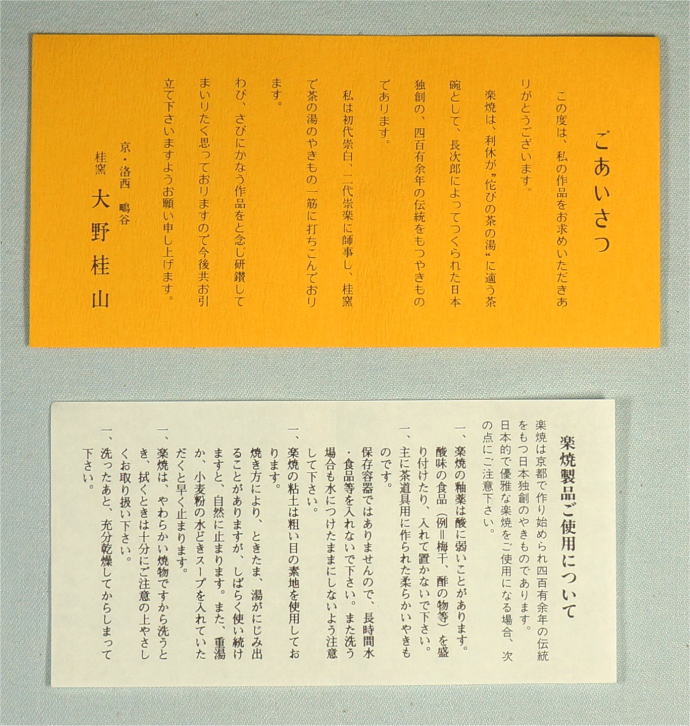 ごあいさつ
この度は、私の作品をお求めいただきあ
りがとうございます。
楽焼は、利休が〝侘びの茶の湯〟に適う茶
碗として、長次郎によってつくられた日本
独創の、四百有余年の伝統をもつやきもの
であります。
私は初代崇白、二代崇楽に師事し、桂窯
で茶の湯のやきもの一筋に打ちこんでおり
ます。
わび、さびにかなう作品をと念じ研鑽して
まいりたく思っておりますので今後共お引
立て下さいますようお願い申し上げます。
京・洛西 鴫谷
桂窯 大野桂山
楽焼製品ご使用について
楽焼は京都で作り始められ四百有余年の伝統
をもつ日本独創のやきものであります。
日本的で優雅な楽焼をご使用になる場合、次
の点にご注意下さい。
一、楽焼の釉薬は酸に弱いことがあります。
酸味の食品（例＝梅干、酢の物等）を盛
り付けたり、入れて置かないで下さい。
一、主に茶道具用に作られた柔らかいやきも
のです。
保存容器ではありませんので、長時間水
・食品等を入れないで下さい。また洗う
場合も水につけたままにしないよう注意
して下さい。
一、楽焼の粘土は粗い目の素地を使用してお
ります。
焼き方により、ときたま、湯がにじみ出
ることがありますが、しばらく使い続け
ますと、自然に止まります。また、重湯
か、小麦粉の水どきスープを入れていた
だくと早く止まります。
一、楽焼は、やわらかい焼物ですから洗うと
き、拭くときは十分にご注意の上やさし
くお取り扱い下さい。
一、洗ったあと、充分乾燥してからしまって
下さい。